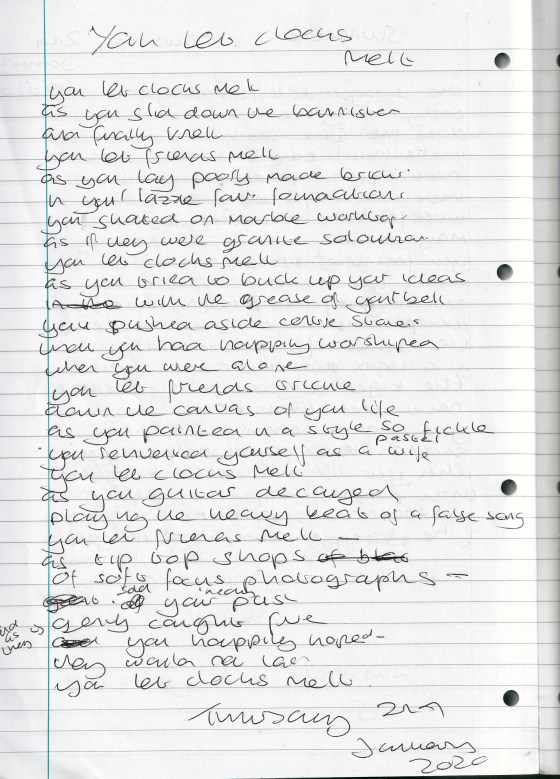 You let clocks
melt
you let clocks melt
as you slid down the bannister
and finally knelt
you let friends melt
as you lay poorly made bricks
in your lazze fair formations
you skated on marble worktop
as if they were granite
you let clocks melt
as you tried to buck up your ideas
with the grease of your belt
you pushed aside
you had happing worshiped
when you were alone
you let friends trickle
down the canvas of you life
as you painted in a style so fickle
you reinvented yourself as a pastel wife
you let clocks melt
as you guitar decayed
playing the heavy beat of a false song
you let friends melt —
as tip top shops
of soft focus photographs —
sad your past
caught fire
and as they
you happing hoped
they would not last
you let clocks melt.
Thursday 2nd
January
2020